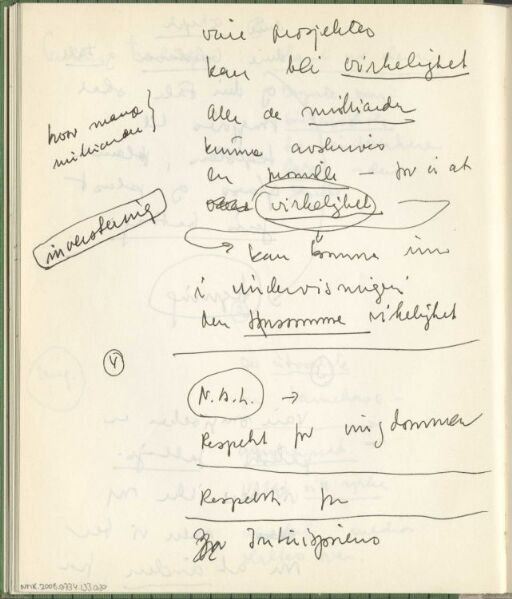 våre prosjekter
kan bli virkelighet
Alle de milliarder
hvor mange
milliarder
kunne avskrives
en promille – for vi at
virkelighet
investering
kan komme inn
i undervisningen
den virkelighet
V
N.B.L. →
Respekt for ungdommen
Respekt for
NMK.2005.0734.133.020